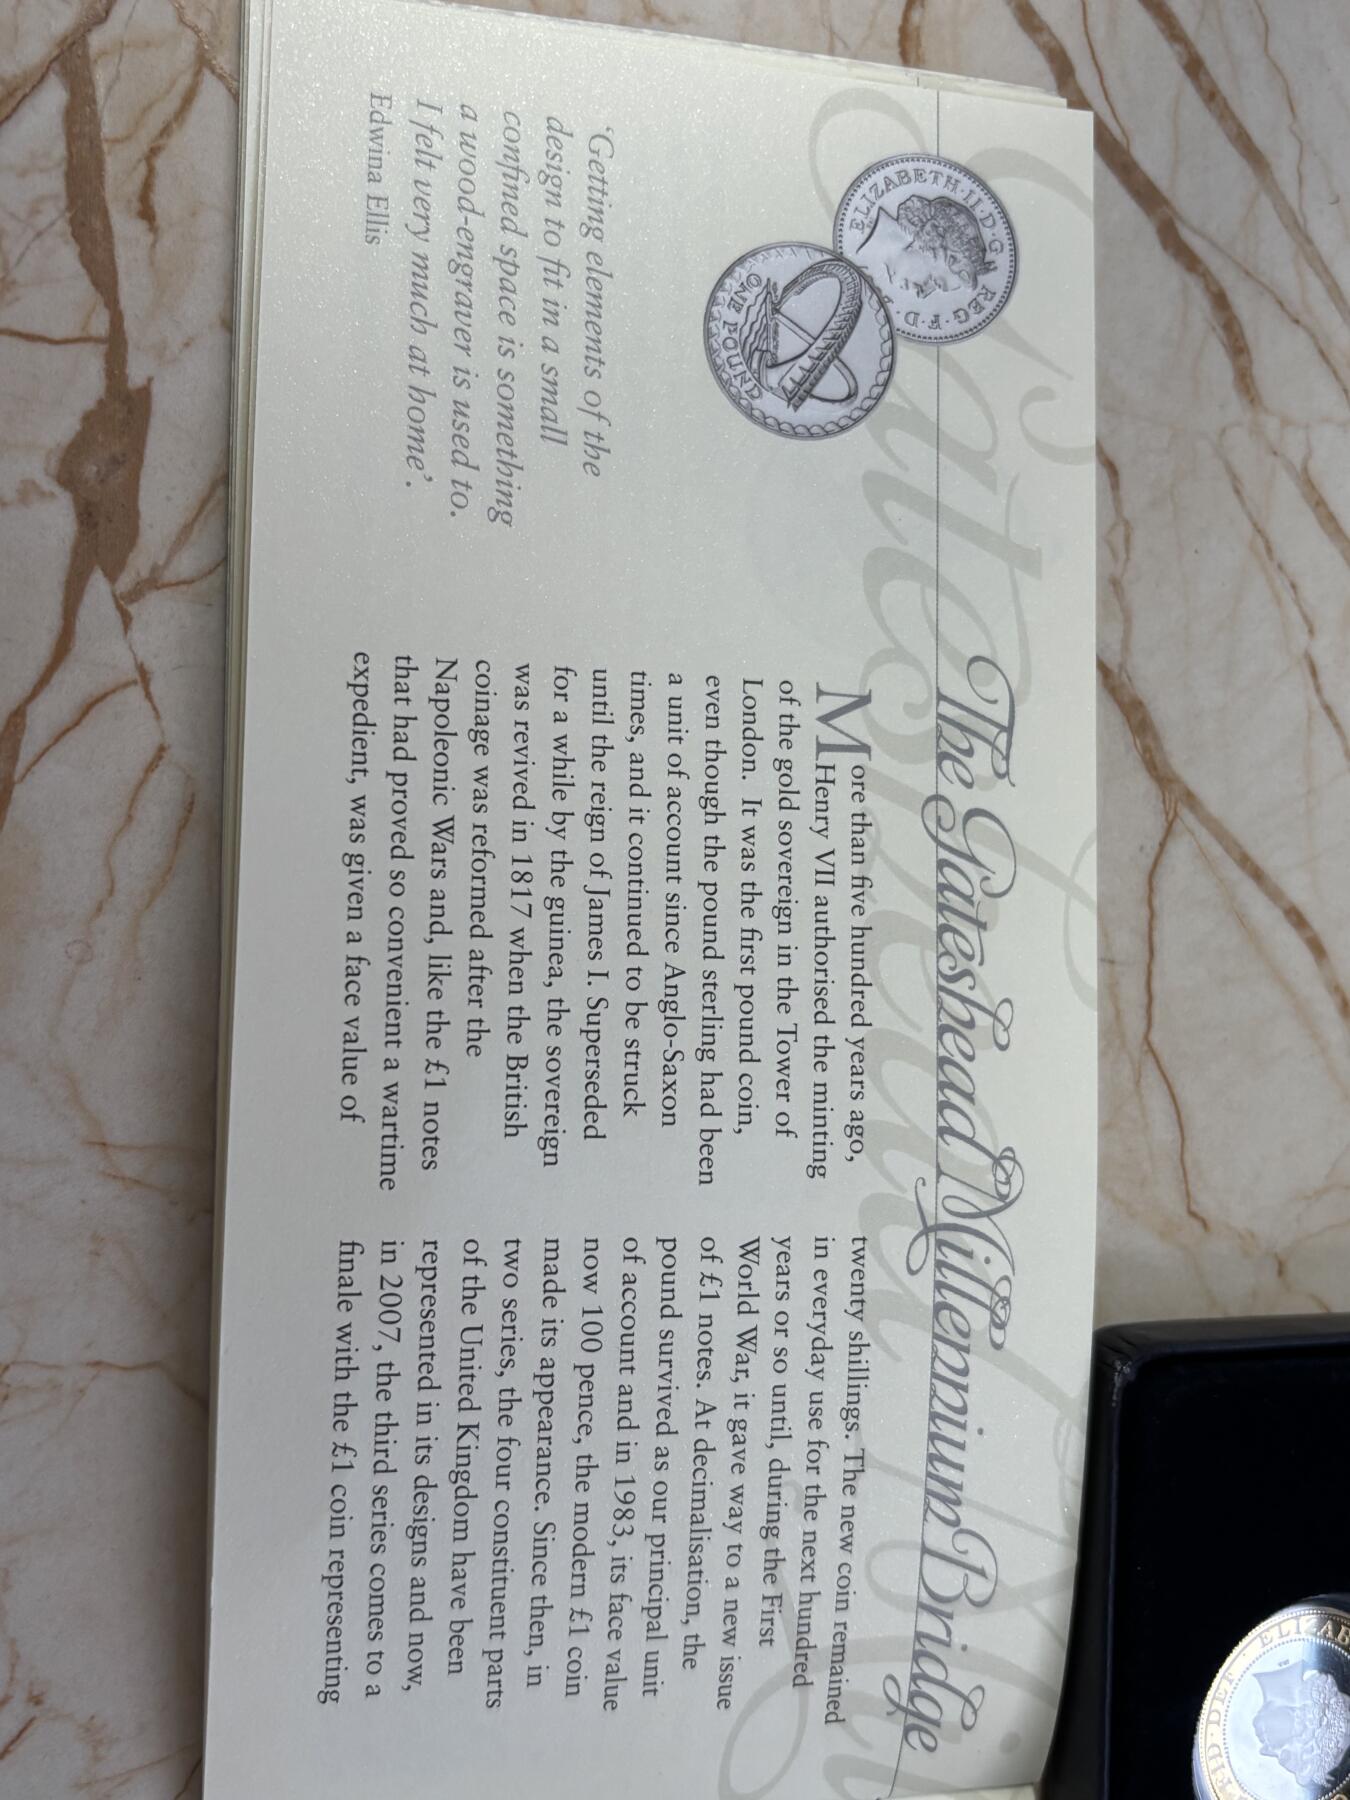 The Gateshead Millennium Bridge
ELIZABETH·II·D·G
REG·F·D·
ONE POUND
'Getting elements of the
design to fit in a small
confined space is something
a wood-engraver is used to.
I felt very much at home'.
Edwina Ellis
More than five hundred years ago,
Henry VII authorised the minting
of the gold sovereign in the Tower of
London. It was the first pound coin,
even though the pound sterling had been
a unit of account since Anglo-Saxon
times, and it continued to be struck
until the reign of James I. Superseded
for a while by the guinea, the sovereign
was revived in 1817 when the British
coinage was reformed after the
Napoleonic Wars and, like the £1 notes
that had proved so convenient a wartime
expedient, was given a face value of
twenty shillings. The new coin remained
in everyday use for the next hundred
years or so until, during the First
World War, it gave way to a new issue
of £1 notes. At decimalisation, the
pound survived as our principal unit
of account and in 1983, its face value
now 100 pence, the modern £1 coin
made its appearance. Since then, in
two series, the four constituent parts
of the United Kingdom have been
represented in its designs and now,
in 2007, the third series comes to a
finale with the £1 coin representing